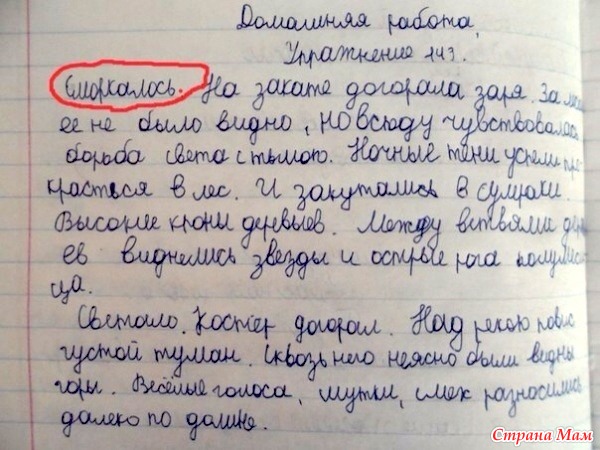 Домашняя работа
Упражнение 143.
Сморкалось. На закате догорала заря. За
ее не было видно, но всюду чувствовалась
борьба света с тьмою. Ночные тени успели про
красться в лес. И закутались в сумраки.
Высокие кроны деревьев. Между ветвями дерев
ев виднелись звезды и острые рога полумеся
ца.
Светало. Костер догорал. Над рекою повис
густой туман. Сквозь него неясно были видны
горы. Весёлые голоса, шутки, смех разносились
далеко по долине.
Страна Мам